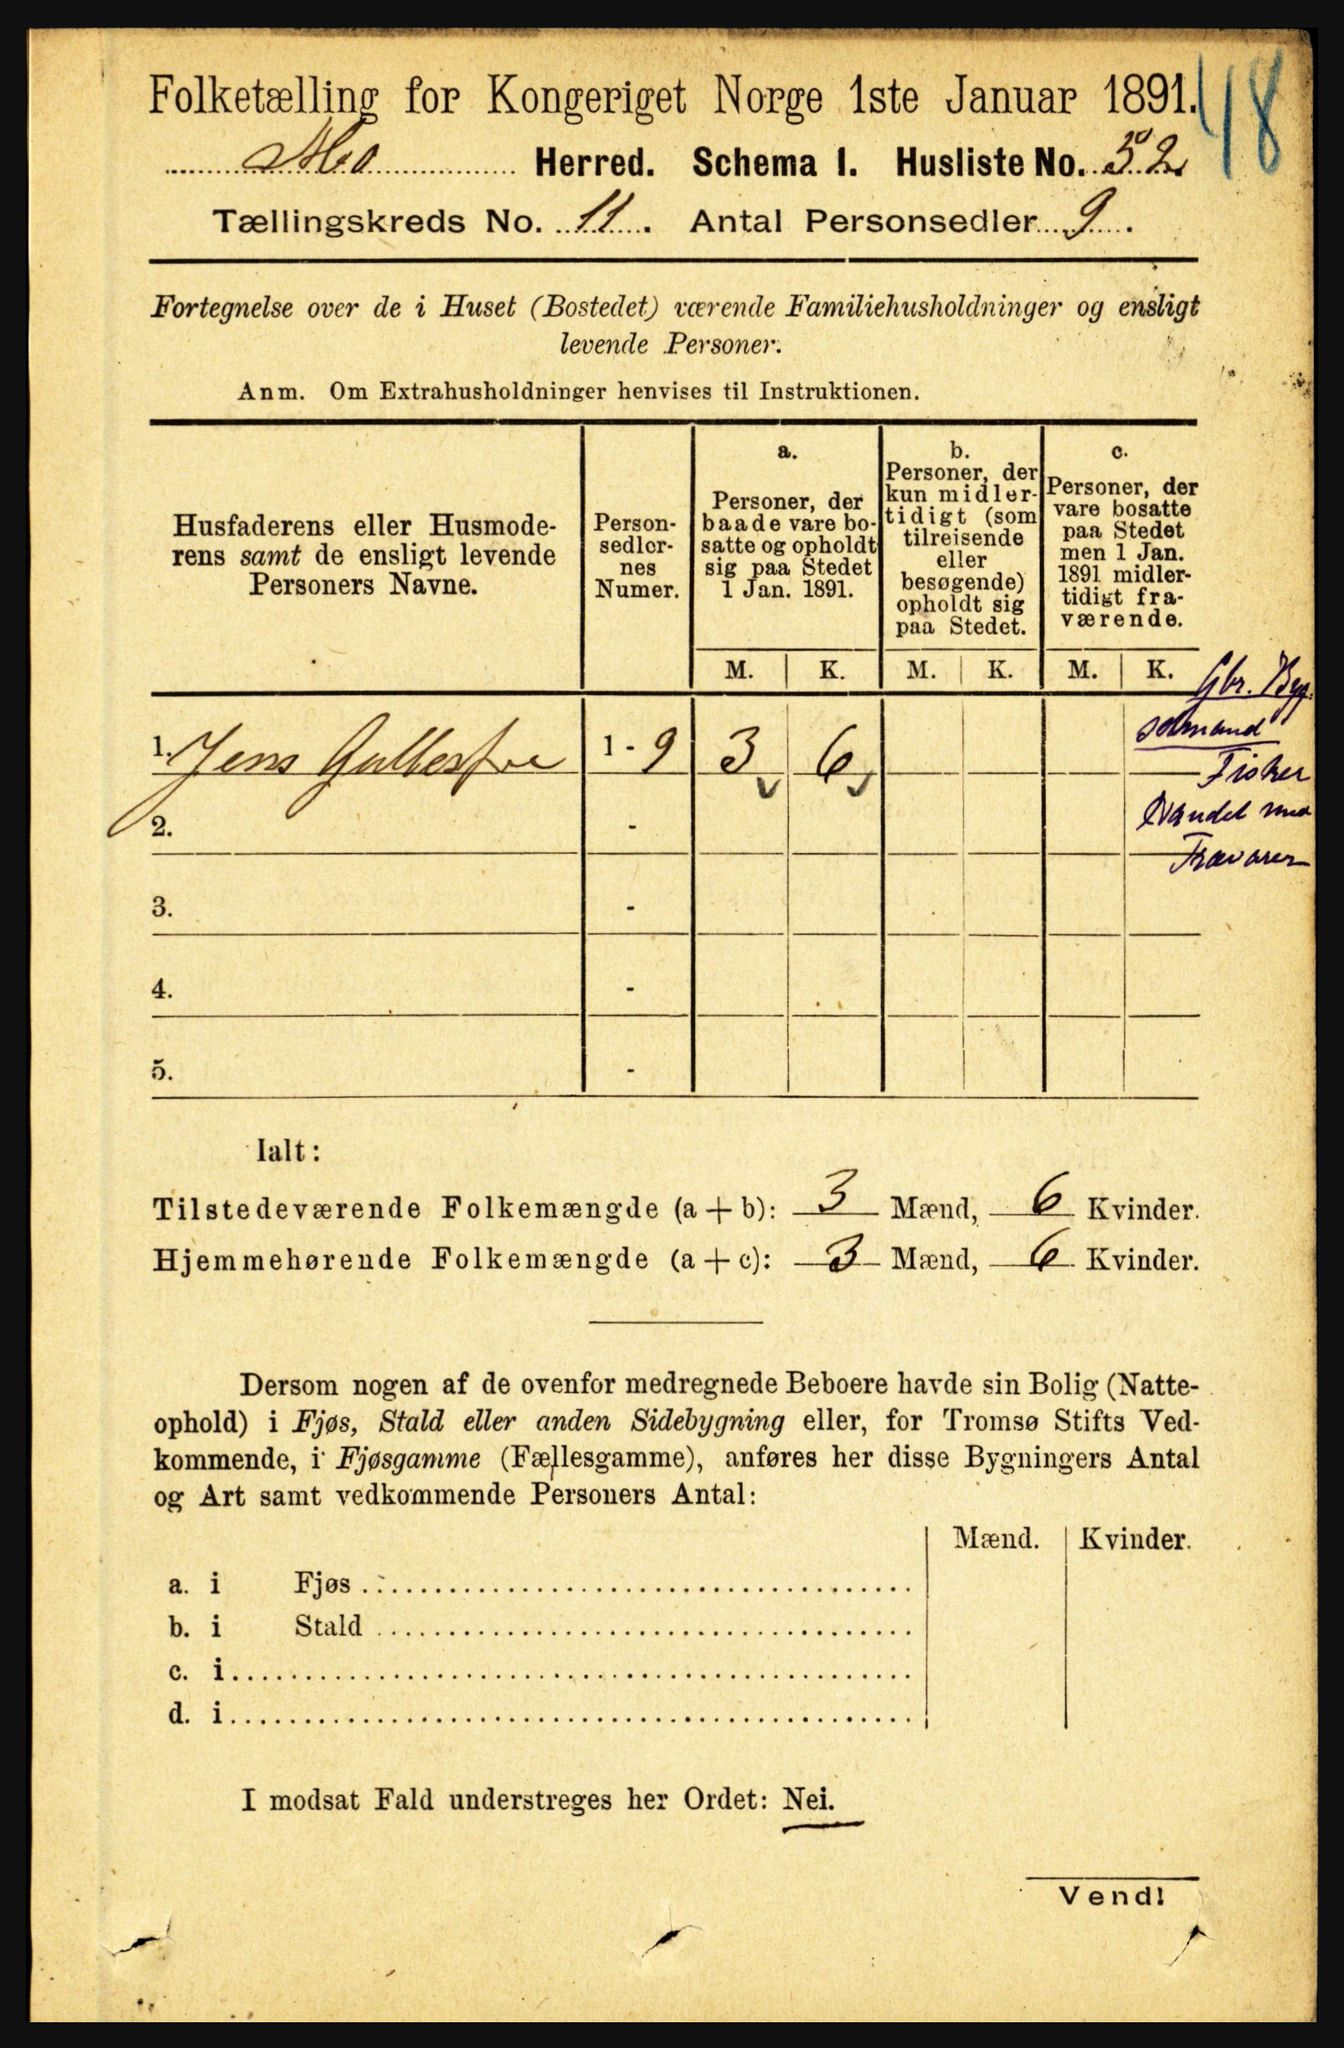 Folketælling for Kongeriget Norge 1ste Januar 1891.
48
Mo Herred. Schema I. Husliste No. 52
Tællingskreds No. 11. Antal Personsedler 9.
Fortegnelse over de i Huset (Bostedet) værende Familiehusholdninger og ensligt
levende Personer.
Anm. Om Extrahusholdninger henvises til Instruktionen.
Husfaderens eller Husmode-
rens samt de ensligt levende
Personers Navne.
Person-
sedler-
nes
Numer.
a.
Personer, der
baade vare bo-
satte og opholdt
sig paa Stedet
1 Jan. 1891.
b.
Personer, der
kun midler-
tidigt (som
tilreisende
eller
besøgende)
opholdt sig
paa Stedet.
c.
Personer, der
vare bosatte
paa Stedet
men 1 Jan.
1891 midler-
tidigt fra-
værende.
M. K. M. K. M. K.
Gbr. Byg.
selmand
Fisker
Handel med
Trævarer
1. Jens 1 - 9 3 6
2. -
3. -
4. -
5. -
Ialt:
Tilstedeværende Folkemængde (a + b): 3 Mænd, 6 Kvinder.
Hjemmehørende Folkemængde (a + c): 3 Mænd, 6 Kvinder.
Dersom nogen af de ovenfor medregnede Beboere havde sin Bolig (Natte-
ophold) i Fjøs, Stald eller anden Sidebygning eller, for Tromsø Stifts Ved-
kommende, i Fjøsgamme (Fællesgamme), anføres her disse Bygningers Antal
og Art samt vedkommende Personers Antal:
Mænd. Kvinder.
a. i Fjøs
b. i Stald
c. i
d. i
I modsat Fald understreges her Ordet: Nei.
Vend!